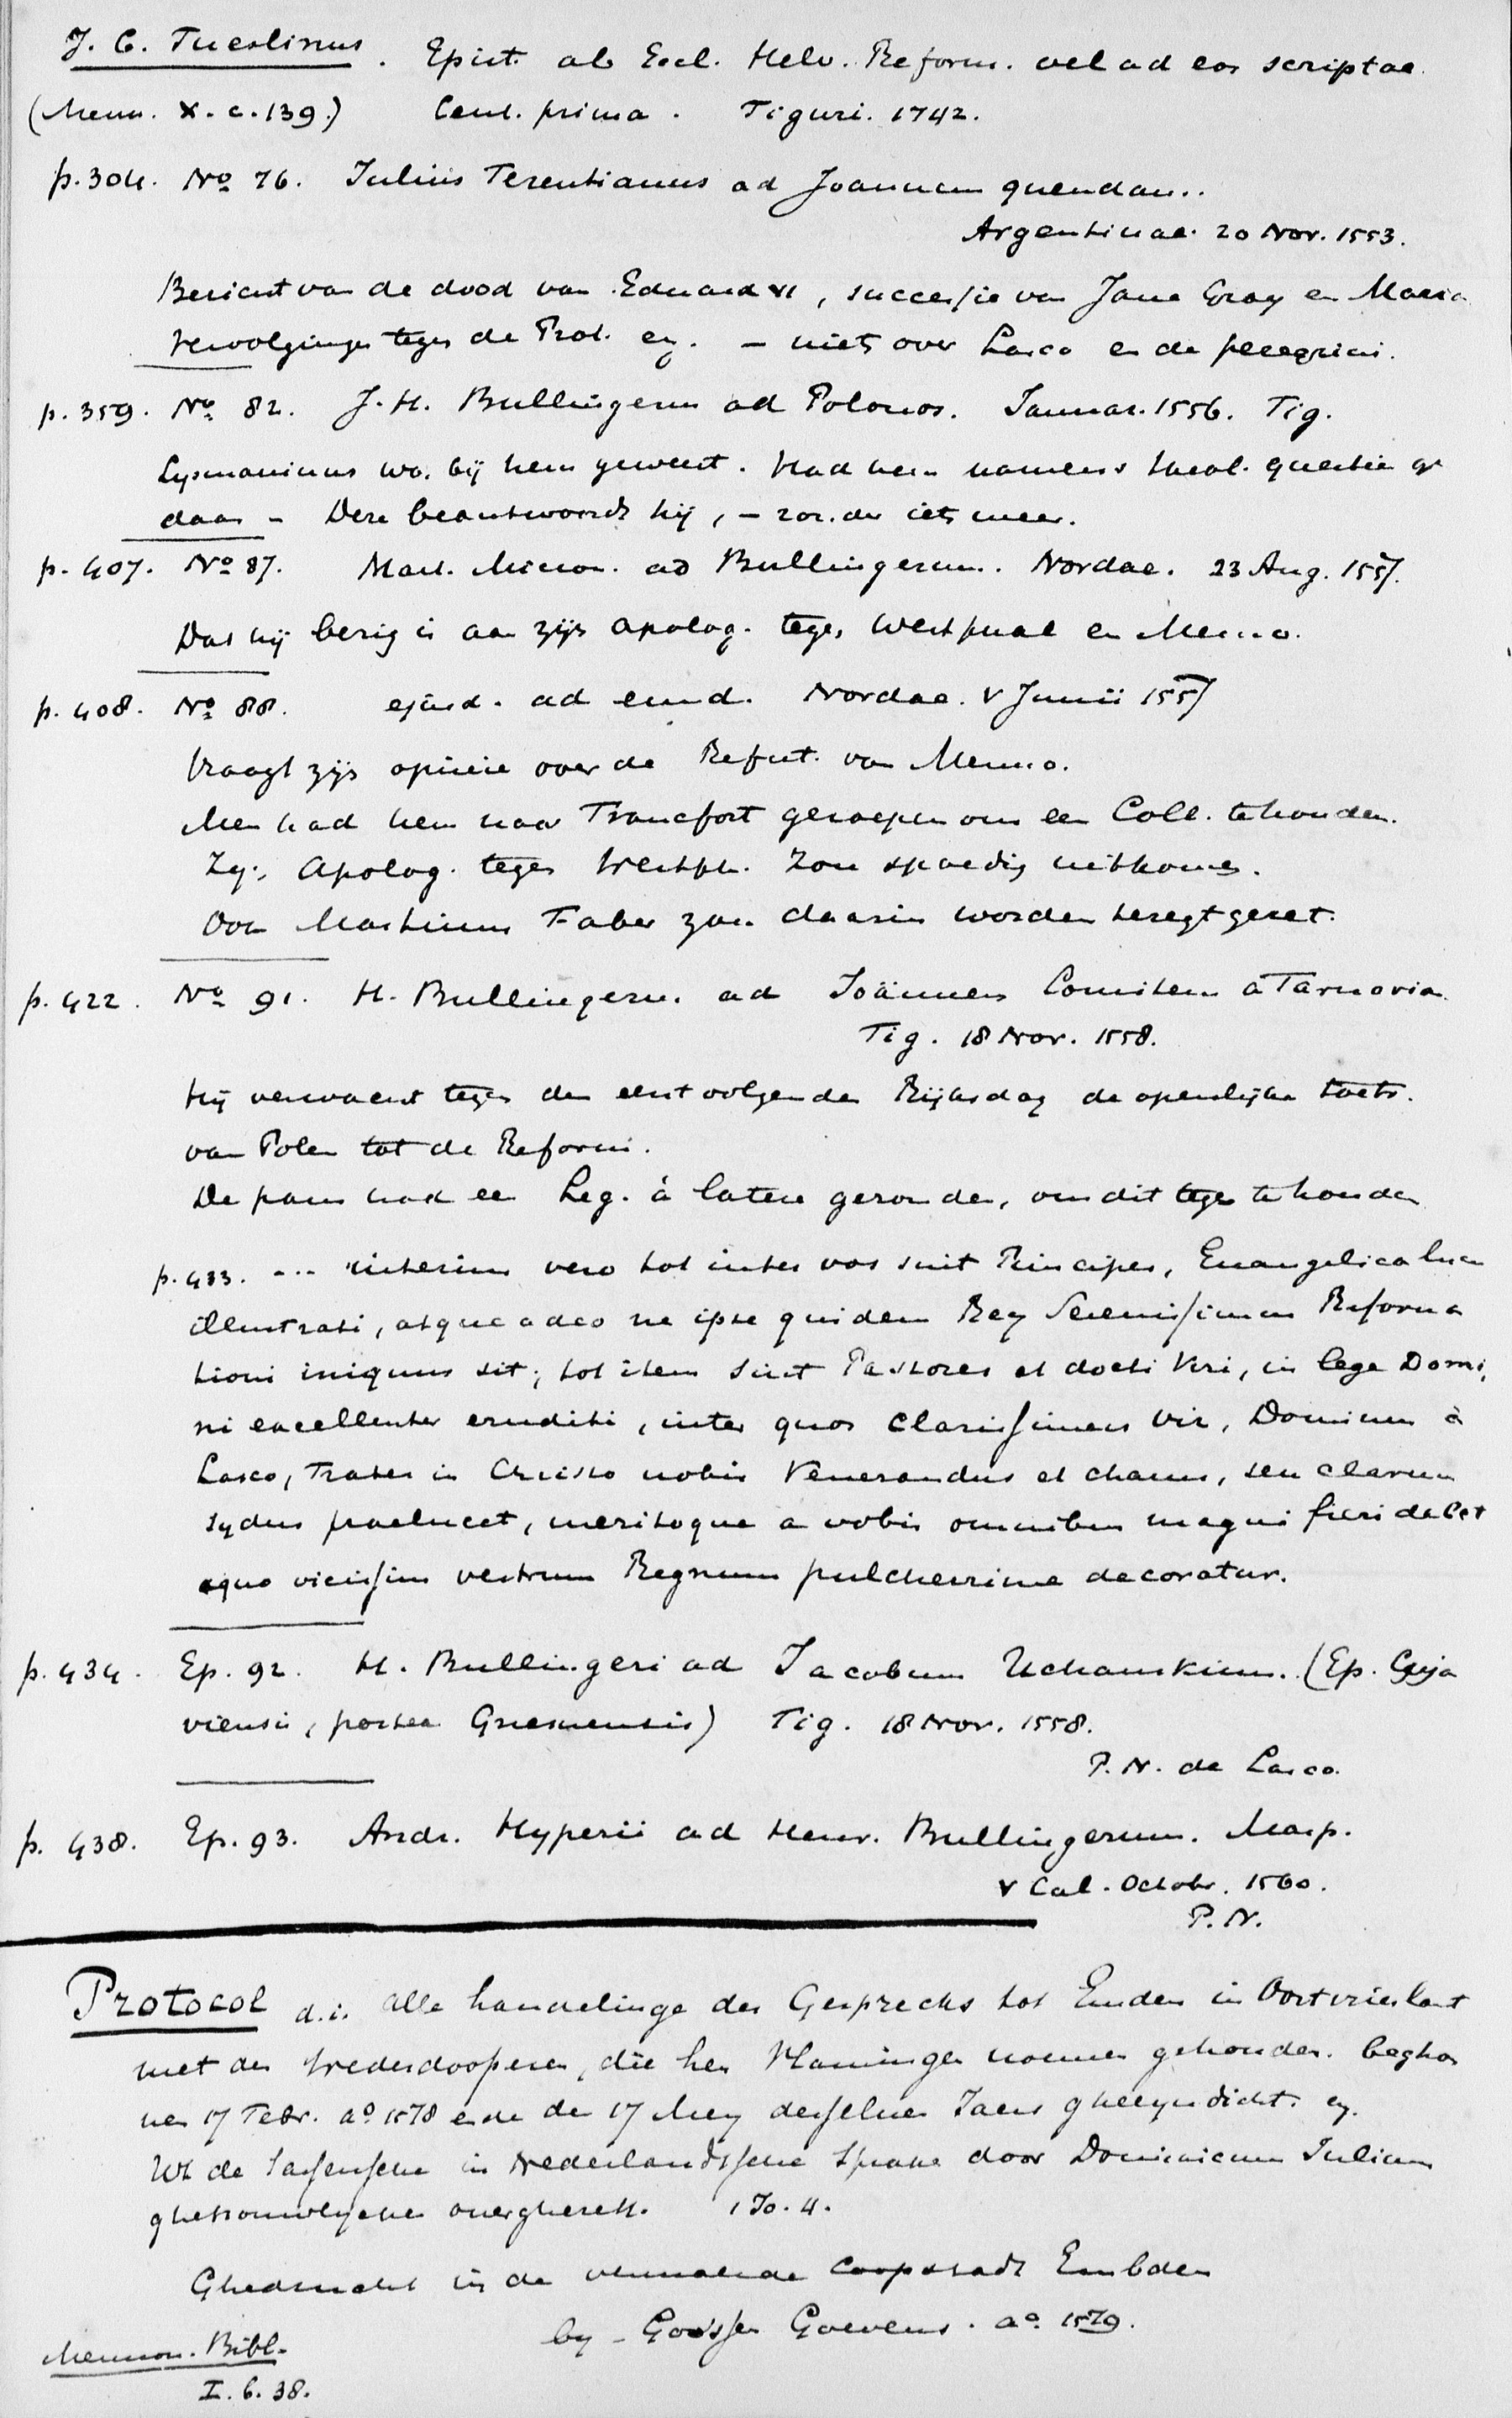 J. C. Fueslinus. Epist. ab Eccl. Helv. Reform. vel ad eos scriptae.
(Menn. X. c. 139.) Cent. prima. Tiguri. 1742.
p. 304. No 76. Julius Terentianus ad Joannem quendam..
Argentinae. 20 Nov. 1553.
Bericht van de dood van Eduard VI, successie van Jane Gray en Maria
vervolgingen tegen de Prot. en. – niets over Lasco en de peregrini.
p. 359. No 82. J. H. Bullingerus ad Polonos. Januar. 1556. Tig.
Lysmaninus wa. bij hem geweest. Had hem namens theol. questien ge
daan – Deze beantwoordt hij, – zonder iets meer.
p. 407. No 87. Mart. Micron. ad Bullingerum. Nordae. 23 Aug. 1557.
Dat hij bezig is aan zijn apolog. tegen Westphal en Menno.
p. 408. No 88. ejusd. ad eund. Nordae. V Junii 1557
Vraagt zijn opinie over de Refut. van Menno.
Men had hem naar Francfort geroepen om een Coll. te houden.
Zijn Apolog. tegen Westph. zou spoedig uitkomen.
Ook Martinus Faber zou daarin worden teregt gezet.
p. 422. No 91. H. Bullingerus ad Joännem Comitem à Tarnovia.
Tig. 18 Nov. 1558.
Hij verwacht tegen den eerstvolgenden Rijksdag de openlijke toetr.
van Polen tot de Reform.
De paus had een Leg. à latere gezonden, om dit tegen te houden
p. 433. ... interim vero tot inter vos sint Principes, Euangelica luce
illustrati, atque adeo ne ipse quidem Rex Serenissimus Reforma
tioni iniquus sit; tot item sint Pastores et docti Viri, in lege Domi,
ni excellenter eruditi, inter quos Clarissimus Vir, Dominus à
Lasco, Frater in Christo nobis Venerandus et charus, seu clarum
sydus praelucet, meritoque a vobis omnibus magni fieri debet
a quo vicissim vestrum Regnum pulcherrime decoratur.
p. 434. Ep. 92. H. Bullingeri ad Jacobum Uchanskium. (Ep. Cuja
viensis, postea Gnesnensis) Tig. 18 Nov. 1558.
P. N. de Lasco.
p. 438. Ep. 93. Andr. Hyperii ad Henr. Bullingerum. Marp.
V Cal. Octobr. 1560.
P. N.
Protocol d. i. alle handelinge des Gesprecks tot Emden in Oostvrieslant
met den Wederdooperen, die hen Vlaminger noemen gehouden. Beghon
nen 17 Febr. ao 1578 ende den 17 Mey desselven Jaers gheeyndicht. en.
Wt de Sassensche in Nederlandtssche Sprake door Dominicum Julium
ghetrouwelyck overgheset. 1 Jo. 4.
Ghedruckt in de vermaerde Coopstadt Embden
by – Goossen Goevens. ao 1579.
Mennon. Bibl.
I. 6. 38.